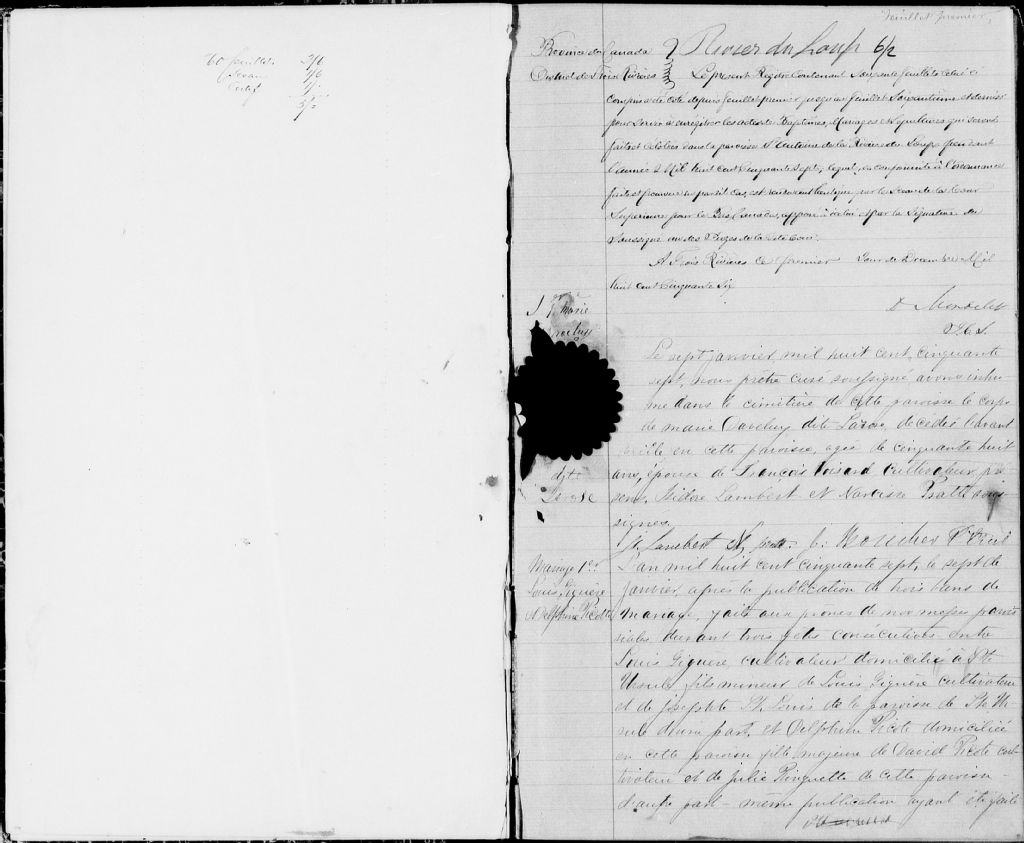 60 feuillets 2/6
Sceau 2/6
Certif
feuillet premier,
Province du Canada
District des Trois Rivières
Rivière du Loup 6/2
Le présent Registre Contenant Soixante feuillets celui ci
compris a été coté depuis feuillet premier jusqu'au feuillet Soixantième et dernier
pour servir à enrégistrer les actes de Baptêmes, Mariages et Sépultures qui seront
faits et célébrés dans la paroisse St Antoine de la Rivière du Loup pendant
l'année Mil huit cent Cinquante Sept, lequel, en conformité à l'Ordonnance
faite et pourvue en pareil cas, est rendu authentique par le Sceau de la Cour
Supérieure pour le Bas Canada, apposé à icelui et par la Signature du
Soussigné un des Juges de la dite Cour.
A Trois Rivières ce premier Jour de Décembre Mil
huit cent Cinquante Six
D Mondelet
J.C.S.
S 1ère
Marie
dite
Larose
Le sept janvier mil huit cent cinquante
sept, nous prêtre curé soussigné avons inhu-
mé dans le cimetière de cette paroisse le corps
de marie Daveluy dite Larose, décédée l'avant
veille en cette paroisse, agée de cinquante huit
ans, épouse de François cultivateur, pré
sens, Isidore Lambert et Narcisse Pratte sous-
signés.
Is. Lambert N. Pratte J. Boucher Ptre Curé
Mariage 1er
Louis Giguère
& Delphine Picotte
L'an mil huit cent cinquante sept, le sept de
janvier, après la publication de trois bans de
mariage, faite aux prônes de nos messes parois
siales durant trois fêtes consécutives entre
Louis Giguère, cultivateur domicilié à Ste
Ursule, fils mineur de Louis Giguère cultivateur
et de josephte St. Louis de la paroisse de Ste Ur
sule d'une part, et Delphine Picote domiciliée
en cette paroisse fille majeure de David Picote cul
tivateur et de Julie Ringuette de cette paroisse
d'autre part — même publication ayant été faite